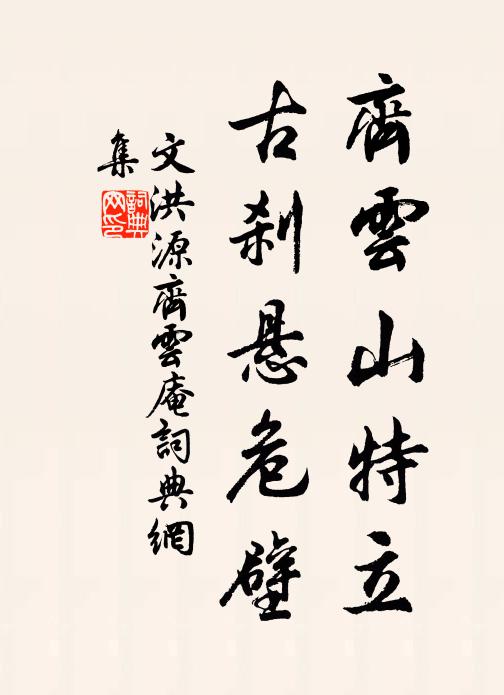 齊雲山特立
古刹懸危壁
文洪源齊雲庵詞典網
集
詞典
网印